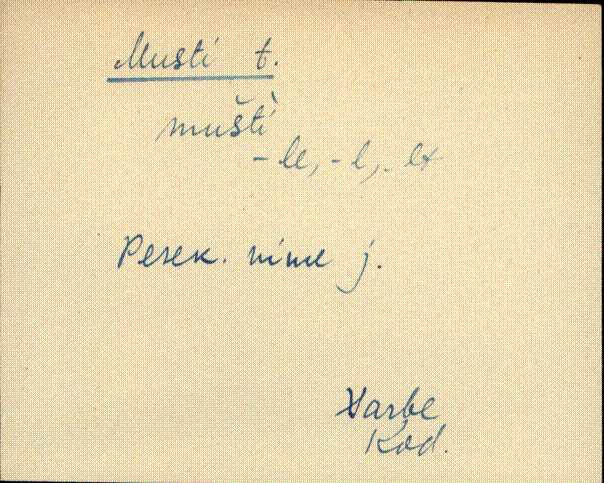 Musti t.
mušti
-le, -l, -lt
Perek. nime j.
Harbe
Kod.